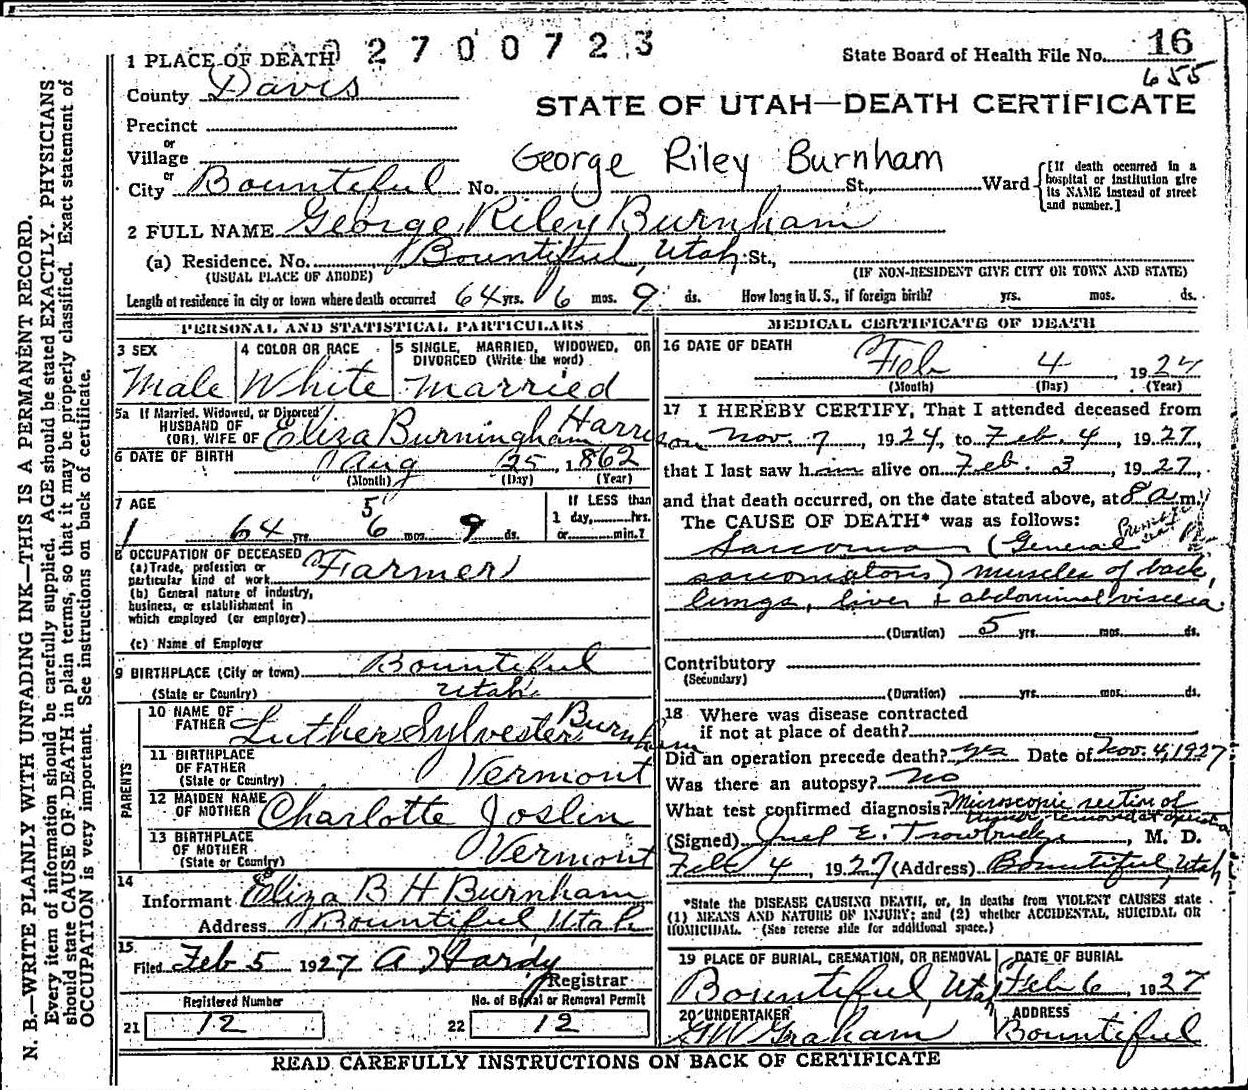 2700723
State Board of Health File No. 16
655
1 PLACE OF DEATH
County Davis
STATE OF UTAH—DEATH CERTIFICATE
Precinct
or
Village
George Riley Burnham
or
City Bountiful No. St., Ward
[If death occurred in a hospital or institution give its NAME instead of street and number.]
2 FULL NAME George Riley Burnham
(a) Residence. No. Bountiful, Utah St.,
(USUAL PLACE OF ABODE) (IF NON-RESIDENT GIVE CITY OR TOWN AND STATE)
Length of residence in city or town where death occurred 64 yrs. 6 mos. 9 ds. How long in U. S., if foreign birth? yrs. mos. ds.
PERSONAL AND STATISTICAL PARTICULARS
3 SEX
Male
4 COLOR OR RACE
White
5 SINGLE, MARRIED, WIDOWED, OR
DIVORCED (Write the word)
married
5a If Married, Widowed, or Divorced
HUSBAND OF
(OR) WIFE OF Eliza Burningham Harrison
6 DATE OF BIRTH Aug 25, 1862
(Month) (Day) (Year)
7 AGE
5
64 yrs. 6 mos. 9 ds.
If LESS than
1 day, hrs.
or min.?
8 OCCUPATION OF DECEASED
(a) Trade, profession or
particular kind of work Farmer
(b) General nature of industry,
business, or establishment in
which employed (or employer)
(c) Name of Employer
9 BIRTHPLACE (City or town) Bountiful
(State or Country) Utah
PARENTS
10 NAME OF
FATHER Luther Sylvester Burnham
11 BIRTHPLACE
OF FATHER
(State or Country) Vermont
12 MAIDEN NAME
OF MOTHER Charlotte Joslin
13 BIRTHPLACE
OF MOTHER
(State or Country) Vermont
14
Informant Eliza B H Burnham
Address Bountiful Utah
15
Filed Feb 5 1927 A Hardy
Registrar
Registered Number No. of Burial or Removal Permit
21 12 22 12
MEDICAL CERTIFICATE OF DEATH
16 DATE OF DEATH
Feb 4, 1927
(Month) (Day) (Year)
17 I HEREBY CERTIFY, That I attended deceased from
Nov. 7, 1924, to Feb. 4, 1927,
that I last saw him alive on Feb. 3, 1927,
and that death occurred, on the date stated above, at 8 a m.
The CAUSE OF DEATH* was as follows:
Sarcoma (General
sarcomatosis) muscles of back,
lungs, liver + abdominal viscera
(Duration) 5 yrs. mos. ds.
Contributory
(Secondary)
(Duration) yrs. mos. ds.
18 Where was disease contracted
if not at place of death?
Did an operation precede death? yes Date of Nov. 4, 1927
Was there an autopsy? No
What test confirmed diagnosis? Microscopic section of
(Signed) E. Trowbridge, M. D.
Feb 4, 1927 (Address) Bountiful, Utah
*State the DISEASE CAUSING DEATH, or, in deaths from VIOLENT CAUSES state
(1) MEANS AND NATURE OF INJURY; and (2) whether ACCIDENTAL, SUICIDAL OR
HOMICIDAL. (See reverse side for additional space.)
19 PLACE OF BURIAL, CREMATION, OR REMOVAL
Bountiful, Utah
DATE OF BURIAL
Feb 6, 1927
20 UNDERTAKER
GW Graham
ADDRESS
Bountiful
READ CAREFULLY INSTRUCTIONS ON BACK OF CERTIFICATE
N. B.—WRITE PLAINLY WITH UNFADING INK—THIS IS A PERMANENT RECORD.
Every item of information should be carefully supplied. AGE should be stated EXACTLY. PHYSICIANS
should state CAUSE OF DEATH in plain terms, so that it may be properly classified. Exact statement of
OCCUPATION is very important. See instructions on back of certificate.